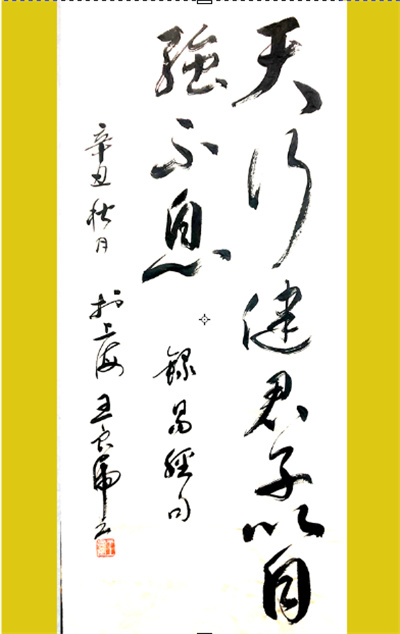 天行健君子以自
強不息 錄易經句
辛丑秋月 於上海 王